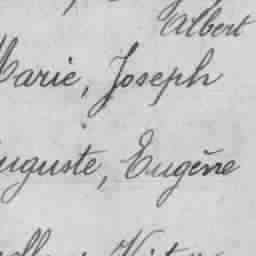 Albert
Marie, Joseph
Auguste, Eugène